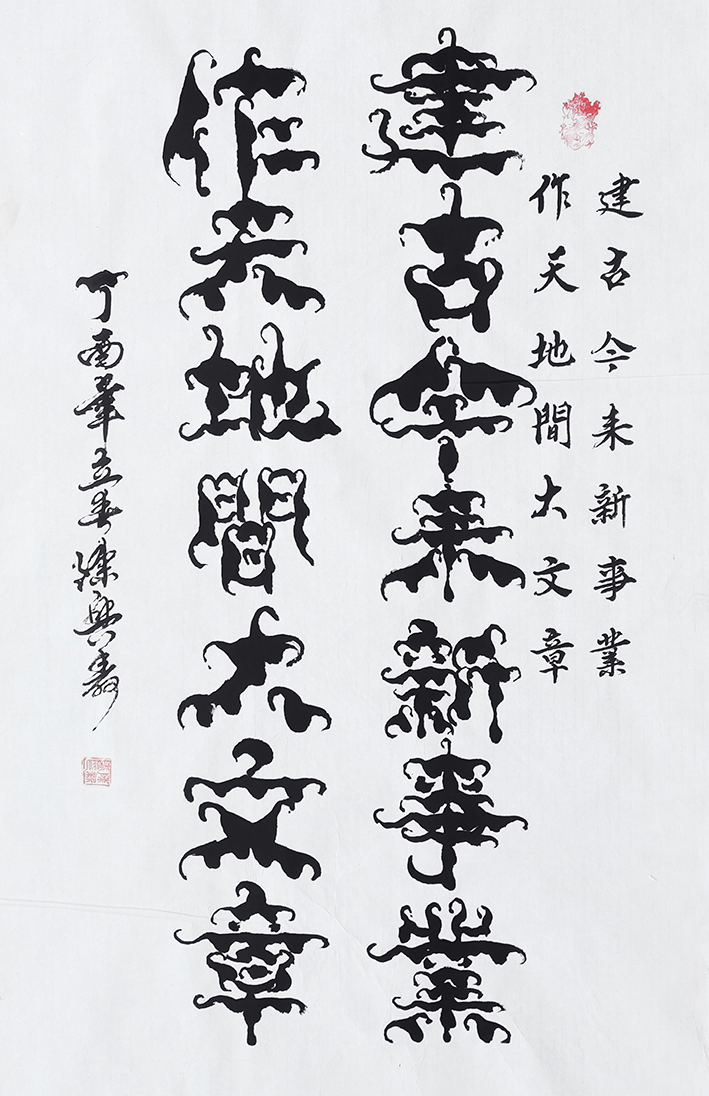 建古今未新事業
作天地間大文章
建古今未新事業
作天地間大文章
丁酉年立春